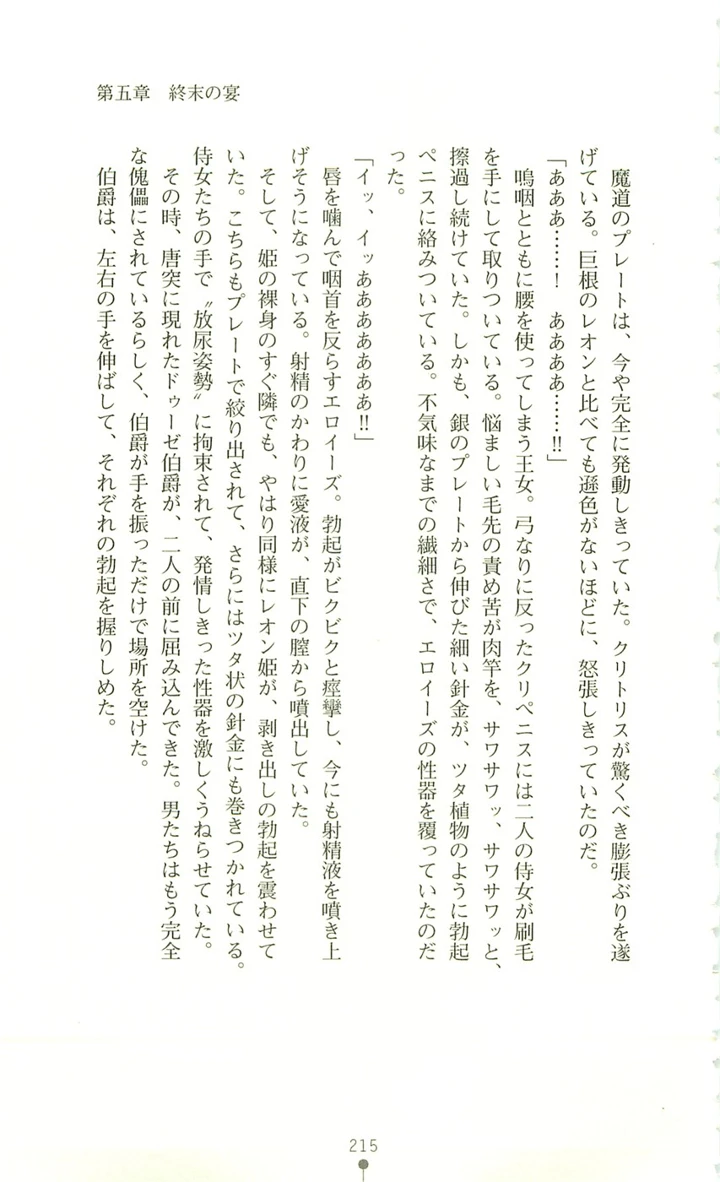 第五章　終末の宴
魔道のプレートは、今や完全に発動しきっていた。クリトリスが驚くべき膨張ぶりを遂
げている。巨根のレオンと比べても遜色がないほどに、怒張しきっていたのだ。
「あああ……！　ああああ……‼」
嗚咽とともに腰を使ってしまう王女。弓なりに反ったクリペニスには二人の侍女が刷毛
を手にして取りついている。悩ましい毛先の責め苦が肉竿を、サワサワッ、サワサワッと、
擦過し続けていた。しかも、銀のプレートから伸びた細い針金が、ツタ植物のように勃起
ペニスに絡みついている。不気味なまでの繊細さで、エロイーズの性器を覆っていたのだ
った。
「イッ、イッああああああああ‼」
唇を噛んで咽首を反らすエロイーズ。勃起がビクビクと痙攣し、今にも射精液を噴き上
げそうになっている。射精のかわりに愛液が、直下の膣から噴出していた。
そして、姫の裸身のすぐ隣でも、やはり同様にレオン姫が、剥き出しの勃起を震わせて
いた。こちらもプレートで絞り出されて、さらにはツタ状の針金にも巻きつかれている。
侍女たちの手で〝放尿姿勢〟に拘束されて、発情しきった性器を激しくうねらせていた。
その時、唐突に現れたドゥーゼ伯爵が、二人の前に屈み込んできた。男たちはもう完全
な傀儡にされているらしく、伯爵が手を振っただけで場所を空けた。
伯爵は、左右の手を伸ばして、それぞれの勃起を握りしめた。
215